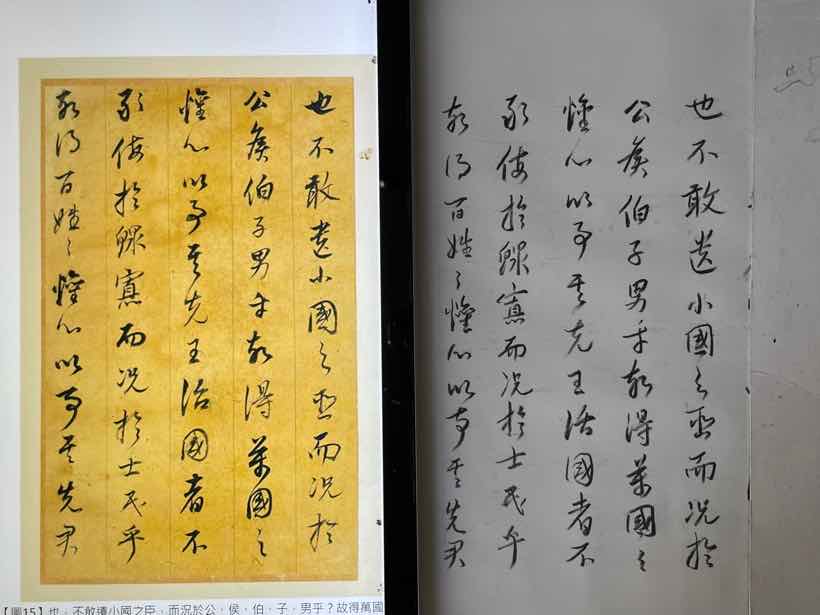 也不敢遺小國之臣而況於
公侯伯子男乎故得萬國之
懽心以事其先王治國者不
敢侮於鰥寡而況於士民乎
故得百姓之懽心以事其先君
【圖15】也，不敢遺小國之臣，而況於公、侯、伯、子、男乎？故得萬國
也不敢遺小國之臣而況於
公侯伯子男乎故得萬國之
懽心以事其先王治國者不
敢侮於鰥寡而況於士民乎
故得百姓之懽心以事其先君